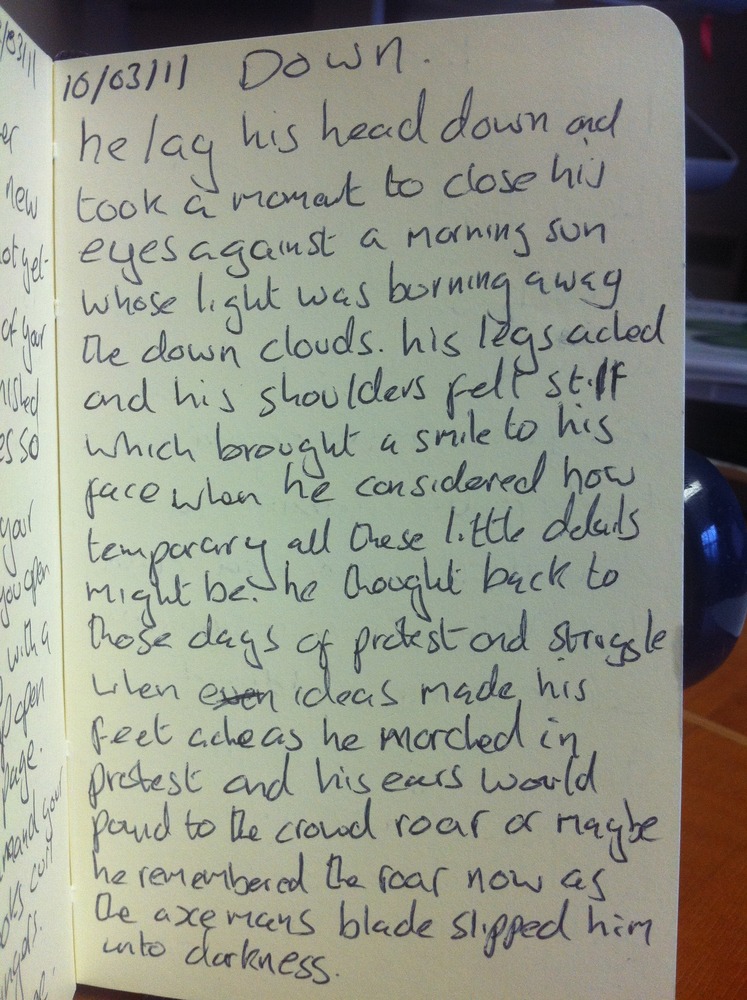 /03/11
er
new
ot yet-
of your
nished
es so
your
you open
with a
open
page.
mand your
oks
ngers.
10/03/11 Down.
he lay his head down and
took a moment to close his
eyes against a morning sun
whose light was burning away
the down clouds. his legs ached
and his shoulders felt stiff
which brought a smile to his
face when he considered how
temporary all these little details
might be. he thought back to
those days of protest and struggle
when even ideas made his
feet ache as he marched in
protest and his ears would
pound to the crowd roar or maybe
he remembered the roar now as
the axemans blade slipped him
into darkness.